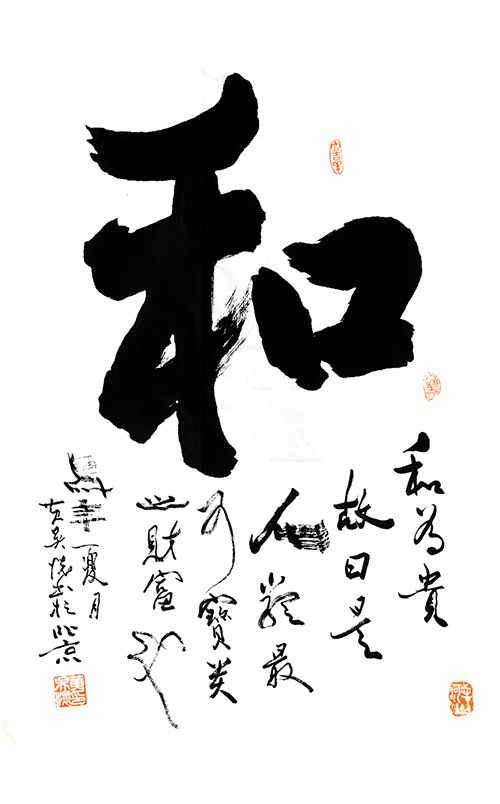 和
和为貴
故曰是
人類最
可寶贵
之財富也
年夏月
於北京